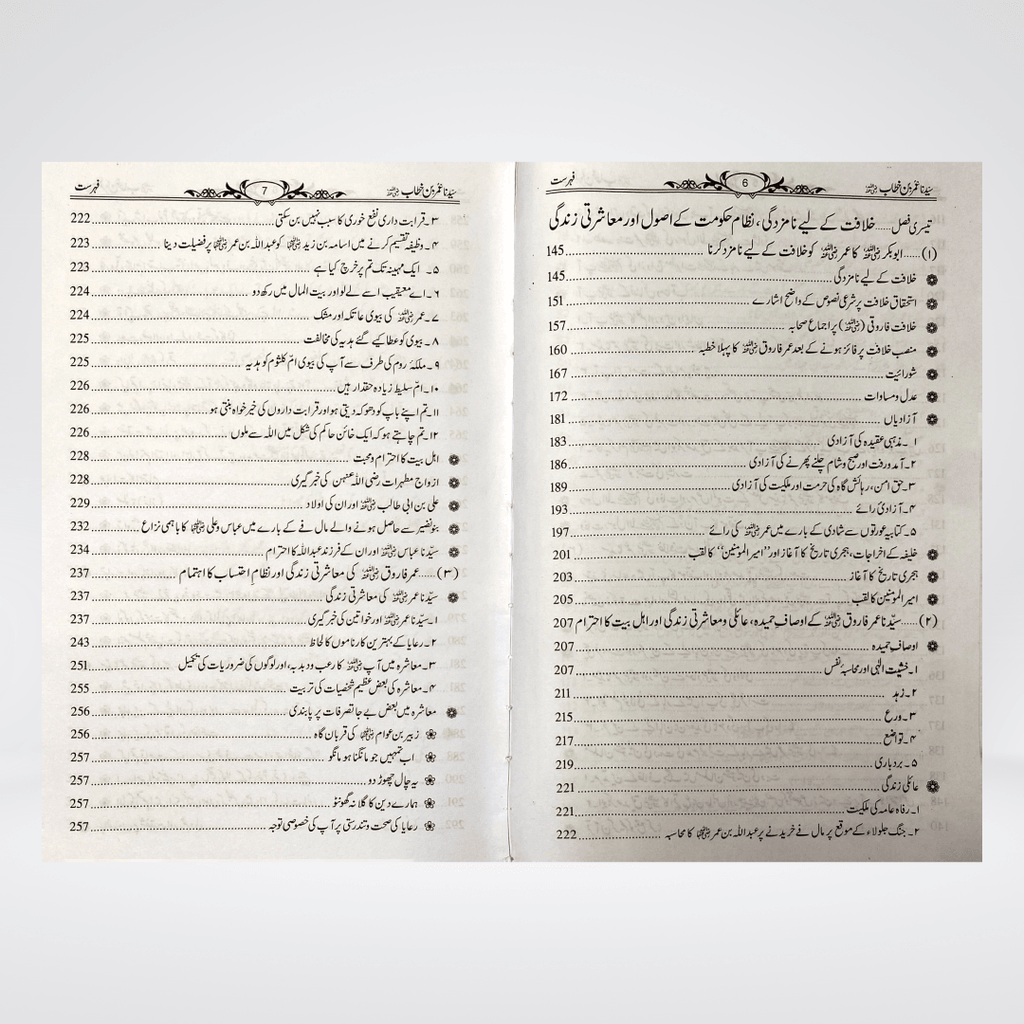 سیّدنا عمر بن خطاب رضی اللہ عنہ 6 فہرست
تیسری فصل......خلافت کے لیے نامزدگی، نظام حکومت کے اصول اور معاشرتی زندگی
(۱)......ابوبکر رضی اللہ عنہ کا عمر رضی اللہ عنہ کو خلافت کے لیے نامزد کرنا 145
خلافت کے لیے نامزدگی 145
استحقاق خلافت پر شرعی نصوص کے واضح اشارے 151
خلافت فاروقی (رضی اللہ عنہ) پر اجماع صحابہ 157
منصب خلافت پر فائز ہونے کے بعد عمر فاروق رضی اللہ عنہ کا پہلا خطبہ 160
شورائیت 167
عدل و مساوات 172
آزادیاں 181
۱۔ مذہبی عقیدہ کی آزادی 183
۲۔ آمد ورفت اور صبح و شام چلنے پھرنے کی آزادی 186
۳۔ حق امن، رہائش گاہ کی حرمت اور ملکیت کی آزادی 189
۴۔ آزادیٔ رائے 193
۵۔ کتابیہ عورتوں سے شادی کے بارے میں عمر رضی اللہ عنہ کی رائے 197
خلیفہ کے اخراجات، ہجری تاریخ کا آغاز اور ’’امیر المومنین‘‘ کا لقب 201
ہجری تاریخ کا آغاز 203
امیر المومنین کا لقب 205
(۲)......سیّدنا عمر فاروق رضی اللہ عنہ کے اوصاف حمیدہ، عائلی و معاشرتی زندگی اور اہل بیت کا احترام 207
اوصاف حمیدہ 207
۱۔ خشیت الٰہی اور محاسبۂ نفس 207
۲۔ زہد 211
۳۔ ورع 215
۴۔ تواضع 217
۵۔ بردباری 219
عائلی زندگی 221
۱۔ رفاہ عامہ کی ملکیت 221
۲۔ جنگ جلولاء کے موقع پر مال فے خریدنے پر عبداللہ بن عمر رضی اللہ عنہ کا محاسبہ 222
سیّدنا عمر بن خطاب رضی اللہ عنہ 7 فہرست
۳۔ قرابت داری نفع خوری کا سبب نہیں بن سکتی 222
۴۔ وظیفہ تقسیم کرنے میں اسامہ بن زید رضی اللہ عنہ کو عبداللہ بن عمر رضی اللہ عنہ پر فضیلت دینا 223
۵۔ ایک مہینہ تک تم پر خرچ کیا ہے 223
۶۔ اے معیقیب اسے لے لو اور بیت المال میں رکھ دو 224
۷۔ عمر رضی اللہ عنہ کی بیوی عاتکہ اور مشک 224
۸۔ بیوی کو عطا کیے گئے ہدیہ کی مخالفت 225
۹۔ ملکۂ روم کی طرف سے آپ کی بیوی امّ کلثوم کو ہدیہ 225
۱۰۔ امّ سلیط زیادہ حقدار ہیں 226
۱۱۔ تم اپنے باپ کو دھوکہ دیتی ہو اور قرابت داروں کی خیر خواہ بنتی ہو 226
۱۲۔ تم چاہتے ہو کہ ایک خائن حاکم کی شکل میں اللہ سے ملوں 226
اہل بیت کا احترام و محبت 228
ازواج مطہرات رضی اللہ عنہن کی خبر گیری 228
علی بن ابی طالب رضی اللہ عنہ اور ان کی اولاد 229
بنو نضیر سے حاصل ہونے والے مال فے کے بارے میں عباس و علی رضی اللہ عنہما کا باہمی نزاع 232
سیّدنا عباس رضی اللہ عنہ اور ان کے فرزند عبداللہ کا احترام 234
(۳)......عمر فاروق رضی اللہ عنہ کی معاشرتی زندگی اور نظام احتساب کا اہتمام 237
سیّدنا عمر رضی اللہ عنہ کی معاشرتی زندگی 237
۱۔ سیّدنا عمر رضی اللہ عنہ اور خواتین کی خبر گیری 237
۲۔ رعایا کے بہترین کارناموں کا لحاظ 243
۳۔ معاشرہ میں آپ رضی اللہ عنہ کا رعب و دبدبہ، اور لوگوں کی ضروریات کی تکمیل 251
۴۔ معاشرہ کی بعض عظیم شخصیات کی تربیت 255
معاشرہ میں بعض بے جا تصرفات پر پابندی 256
زبیر بن عوام رضی اللہ عنہ کی قربان گاہ 256
اب تمہیں جو مانگنا ہو مانگو 257
یہ چال چھوڑ دو 257
ہمارے دین کا گلا نہ گھونٹو 257
رعایا کی صحت و تندرستی پر آپ کی خصوصی توجہ 257